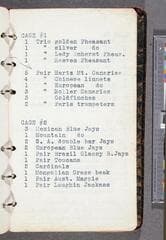 CAGE #1
1 Trio Golden Pheasant
1 " Silver do
1 " Lady Amherst Pheas.
1 " Reeves Pheasant
5 Pair Hartz Mt. Canaries
4 " Chinese Linnets
1 " European do
2 " Roller Canaries
2 " Goldfinches
2 " Paris trumpeters
CAGE #2
3 Mexican Blue Jays
1 Mountain do
2 S. A. double bar Jays
2 European Blue Jays
1 Pair Brazil Glossy B.Jays
1 Pair Toucans
2 Cardinals
1 Mongolian Gross beak
1 Pair Aust. Magpie
1 Pair Laughin Jackass